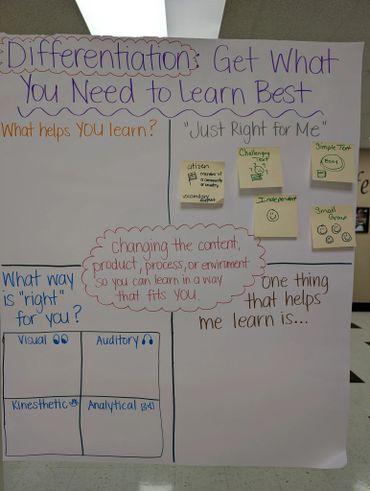 Differentiation: Get What
You Need to Learn Best
What helps YOU learn?
"Just Right for Me"
citizen
member of
a community
or country
vocabulary
Challenging
Text
Simple Text
Independent
Small
Group
Changing the content,
product, process, or enviroment
so you can learn in a way
that fits YOU.
What way
is "right"
for you?
Visual
Auditory
Kinesthetic
Analytical
One thing
that helps
me learn is...